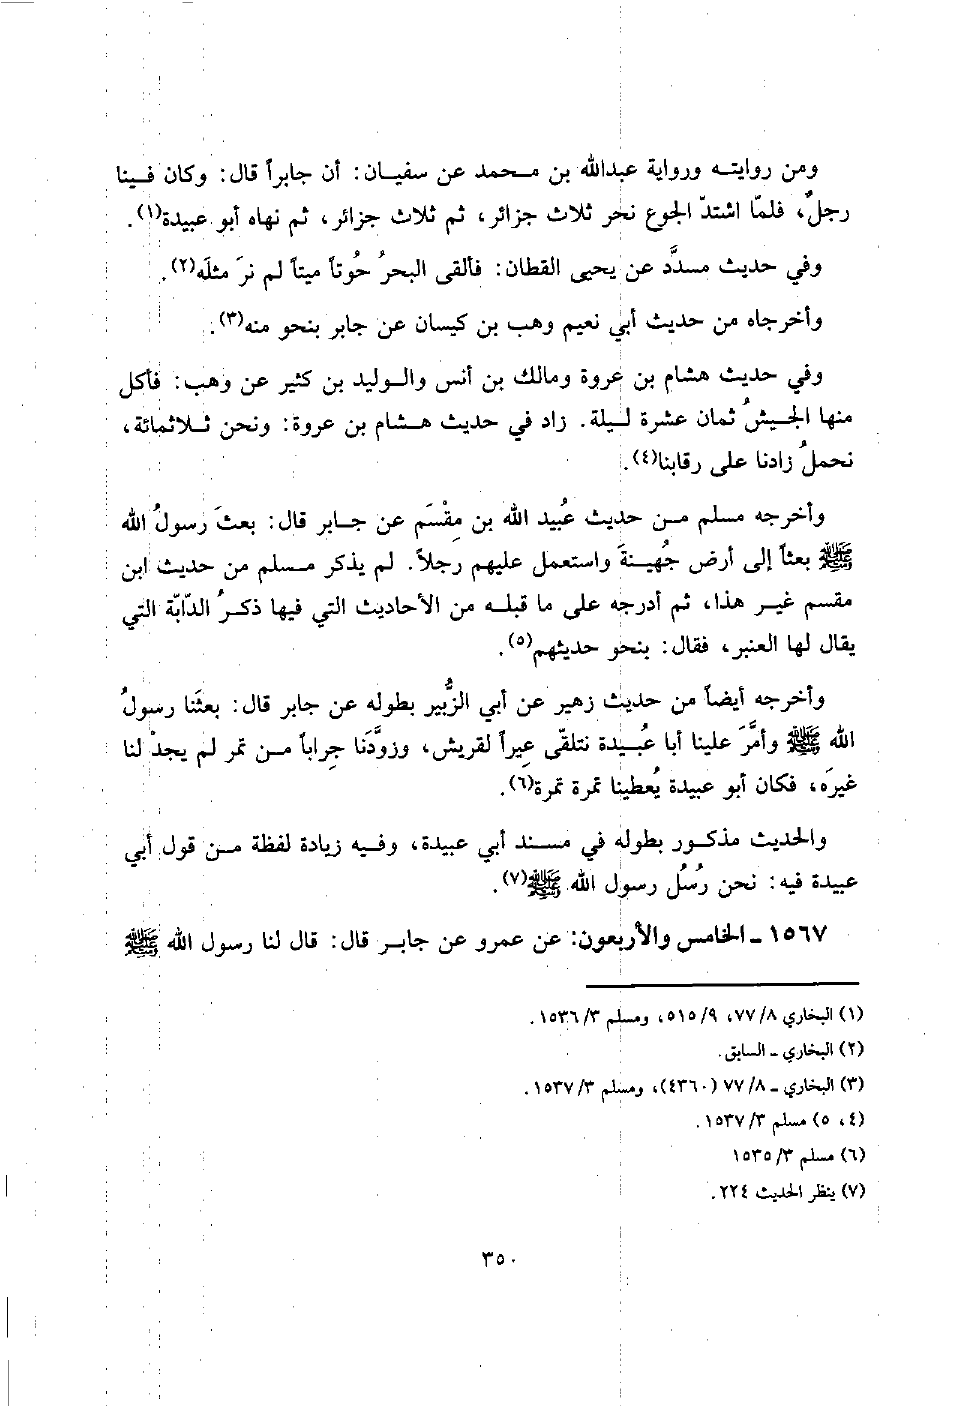 ومن روايتـه ورواية عبدالله بن مـحمد عن سفيـان: أن جابراً قال: وكان فـينا
رجلٌ، فلمّا اشتدّ الجوع نحر ثلاث جزائر، ثم ثلاث جزائر، ثم نهاه أبو عبيدة(١).
وفي حديث مسدَّد عن يحيى القطان: فألقى البحرُ حُوتاً ميتاً لم نرَ مثلَه(٢).
وأخرجاه من حديث أبي نعيم وهب بن كيسان عن جابر بنحو منه(٣).
وفي حديث هشام بن عروة ومالك بن أنس والـوليد بن كثير عن وهب: فأكل
منها الجـيشُ ثمان عشرة لـيلة. زاد في حديث هـشام بن عروة: ونحن ثـلاثمائة،
نحملُ زادنا على رقابنا(٤).
وأخرجه مسلم مـن حديث عُبيد الله بن مِقْسَم عن جـابر قال: بعثَ رسولُ الله
ﷺ بعثاً إلى أرض جُهيـنةَ واستعمل عليهم رجلاً. لم يذكر مـسلم من حديث ابن
مقسم غيـر هذا، ثم أدرجه على ما قبلـه من الأحاديث التي فيها ذكـرُ الدّابّة التي
يقال لها العنبر، فقال: بنحو حديثهم(٥).
وأخرجه أيضاً من حديث زهير عن أبي الزُّبير بطوله عن جابر قال: بعثَنا رسولُ
الله ﷺ وأمَّرَ علينا أبا عُبـيدة نتلقّى عِيراً لقريش، وزوَّدَنا جِراباً مـن تمر لم يجدْ لنا
غيرَه، فكان أبو عبيدة يُعطينا تمرة تمرة(٦).
والحديث مذكـور بطوله في مسـند أبي عبيدة، وفـيه زيادة لفظة مـن قول أبي
عبيدة فيه: نحن رُسُل رسول الله ﷺ(٧).
١٥٦٧ ـ الخامس والأربعون: عن عمرو عن جابـر قال: قال لنا رسول الله ﷺ
(١) البخاري ٧٧/٨، ٥١٥/٩، ومسلم ١٥٣٦/٣.
(٢) البخاري ـ السابق.
(٣) البخاري ـ ٧٧/٨ (٤٣٦٠)، ومسلم ١٥٣٧/٣.
(٤، ٥) مسلم ١٥٣٧/٣.
(٦) مسلم ١٥٣٥/٣
(٧) ينظر الحديث ٢٢٤.
٣٥٠